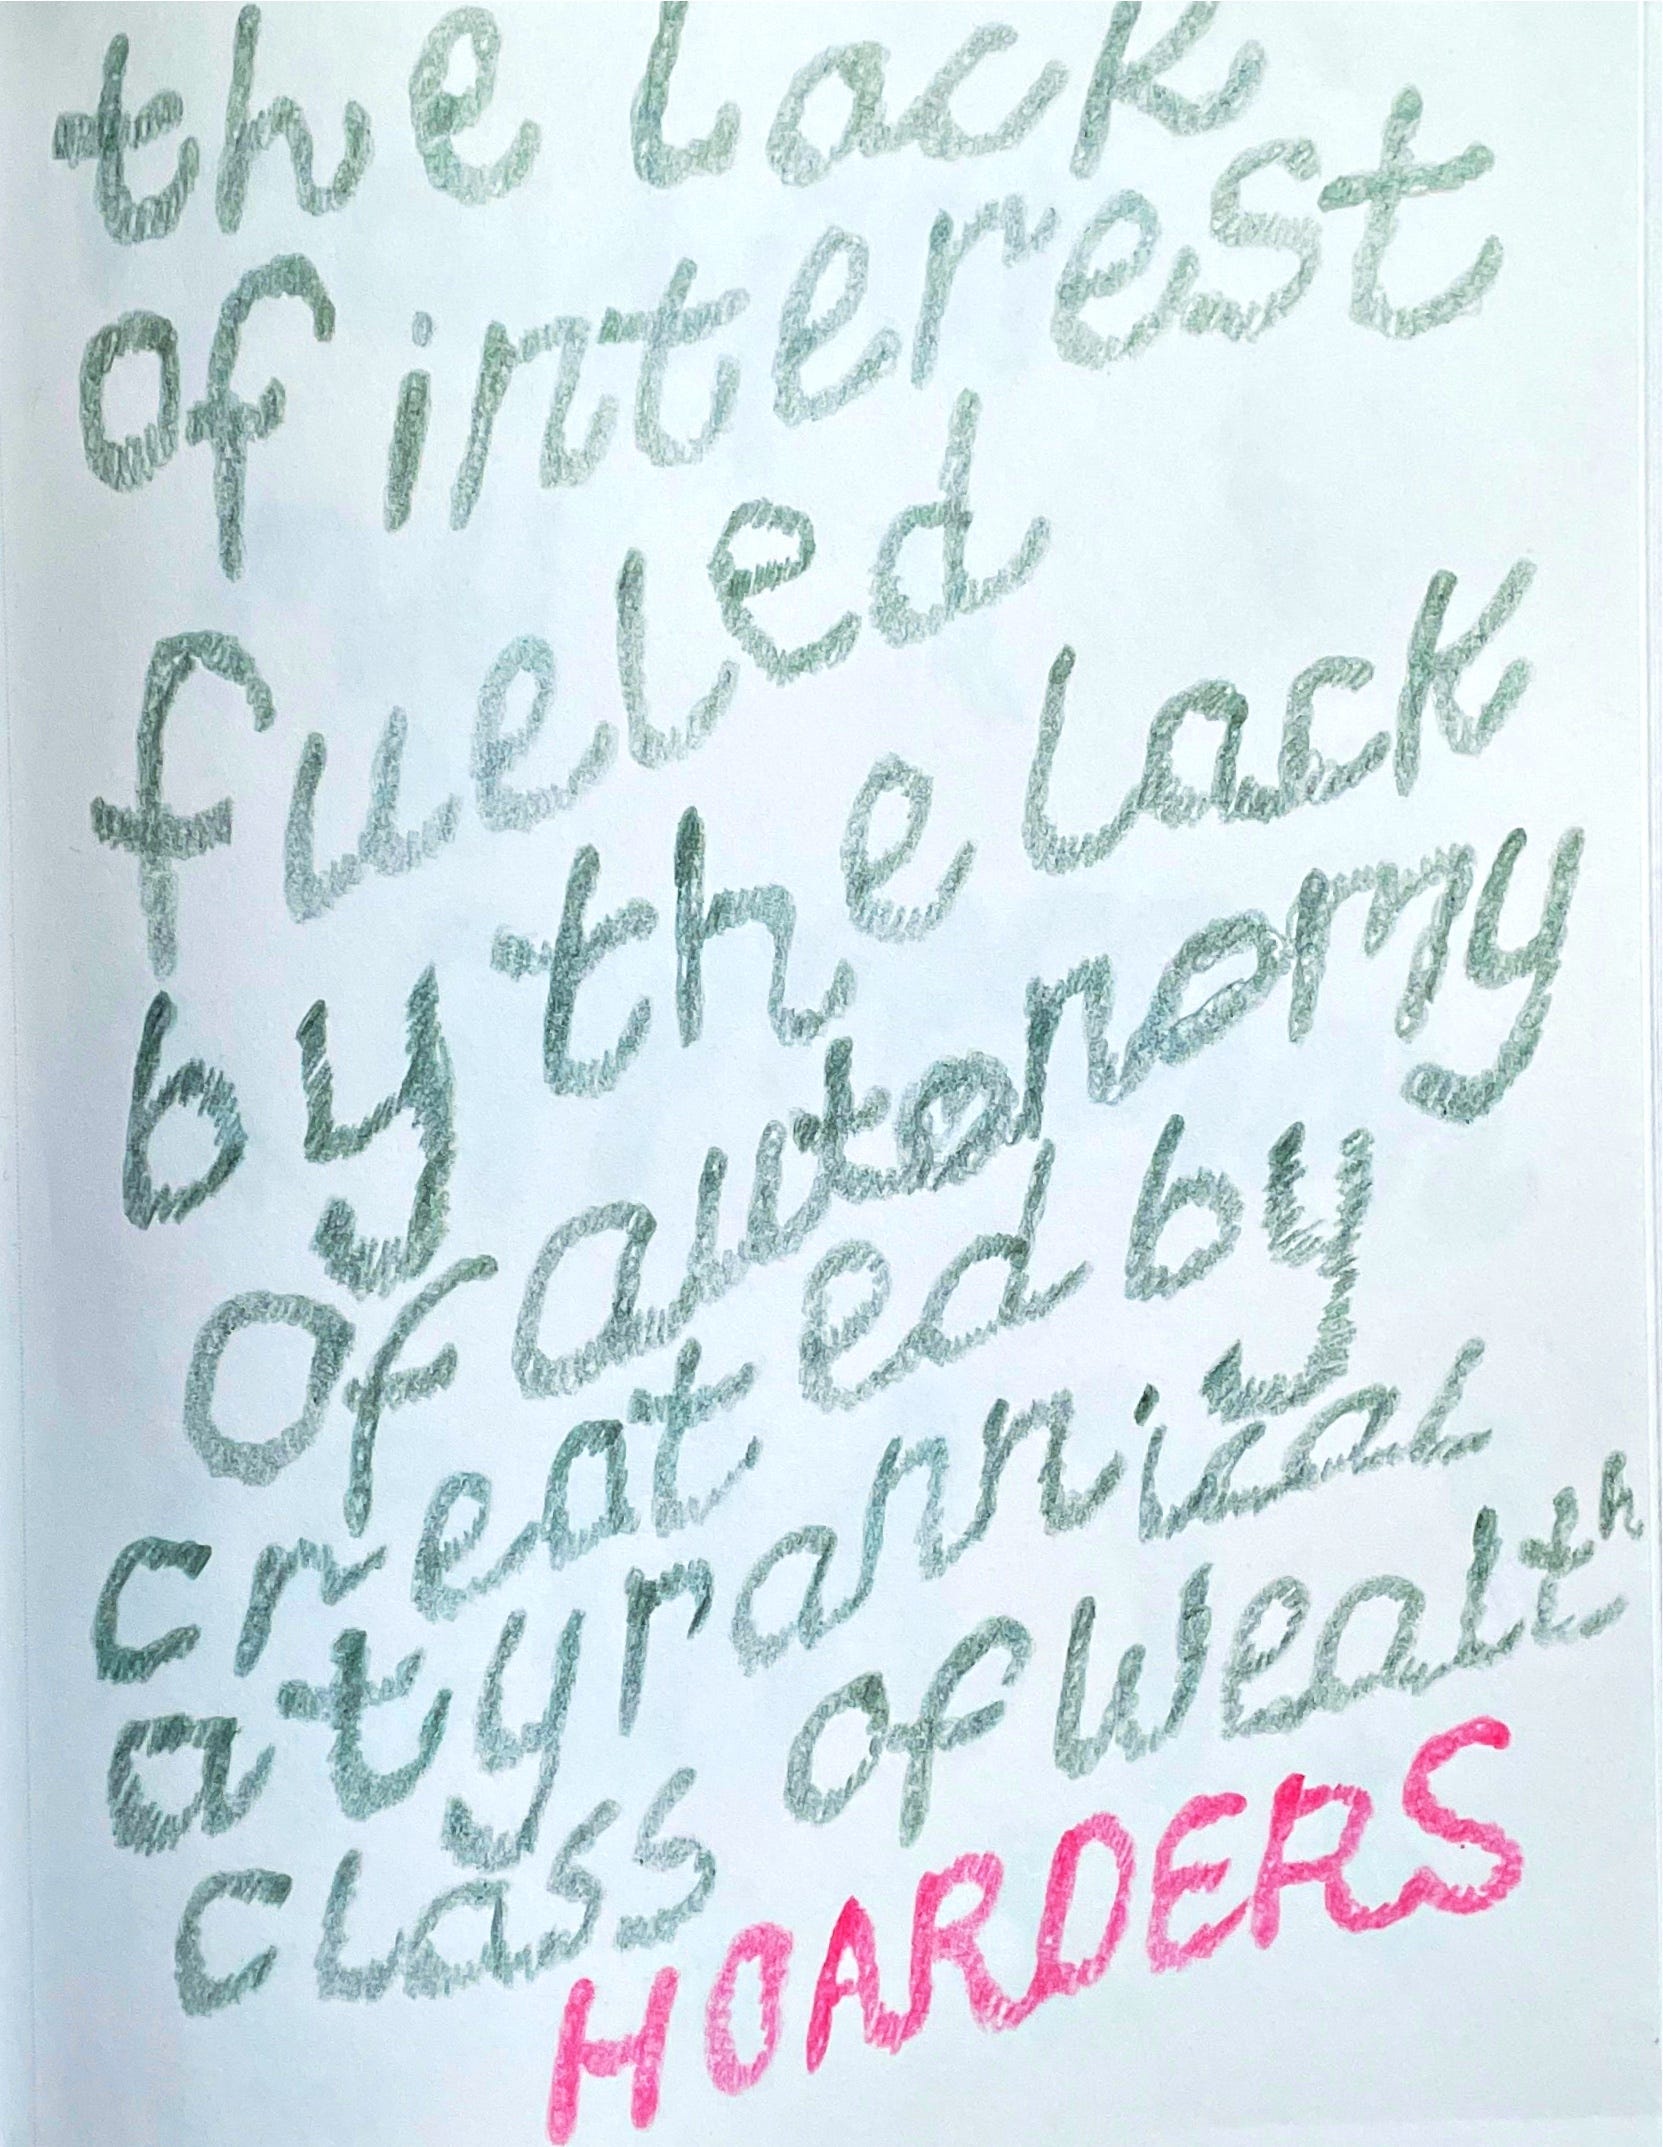 the lack
of interest
fueled
by the lack
of autonomy
created by
a tyrannical
class of wealth
HOARDERS